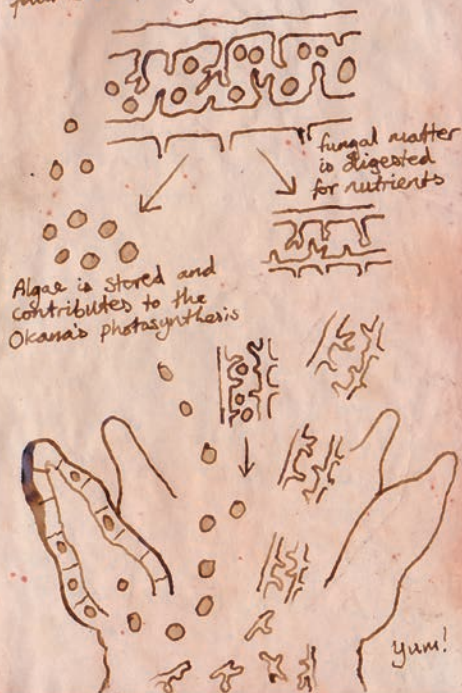 fungal matter
is digested
for nutrients
Algae is stored and
contributes to the
Okana's photosynthesis
Yum!